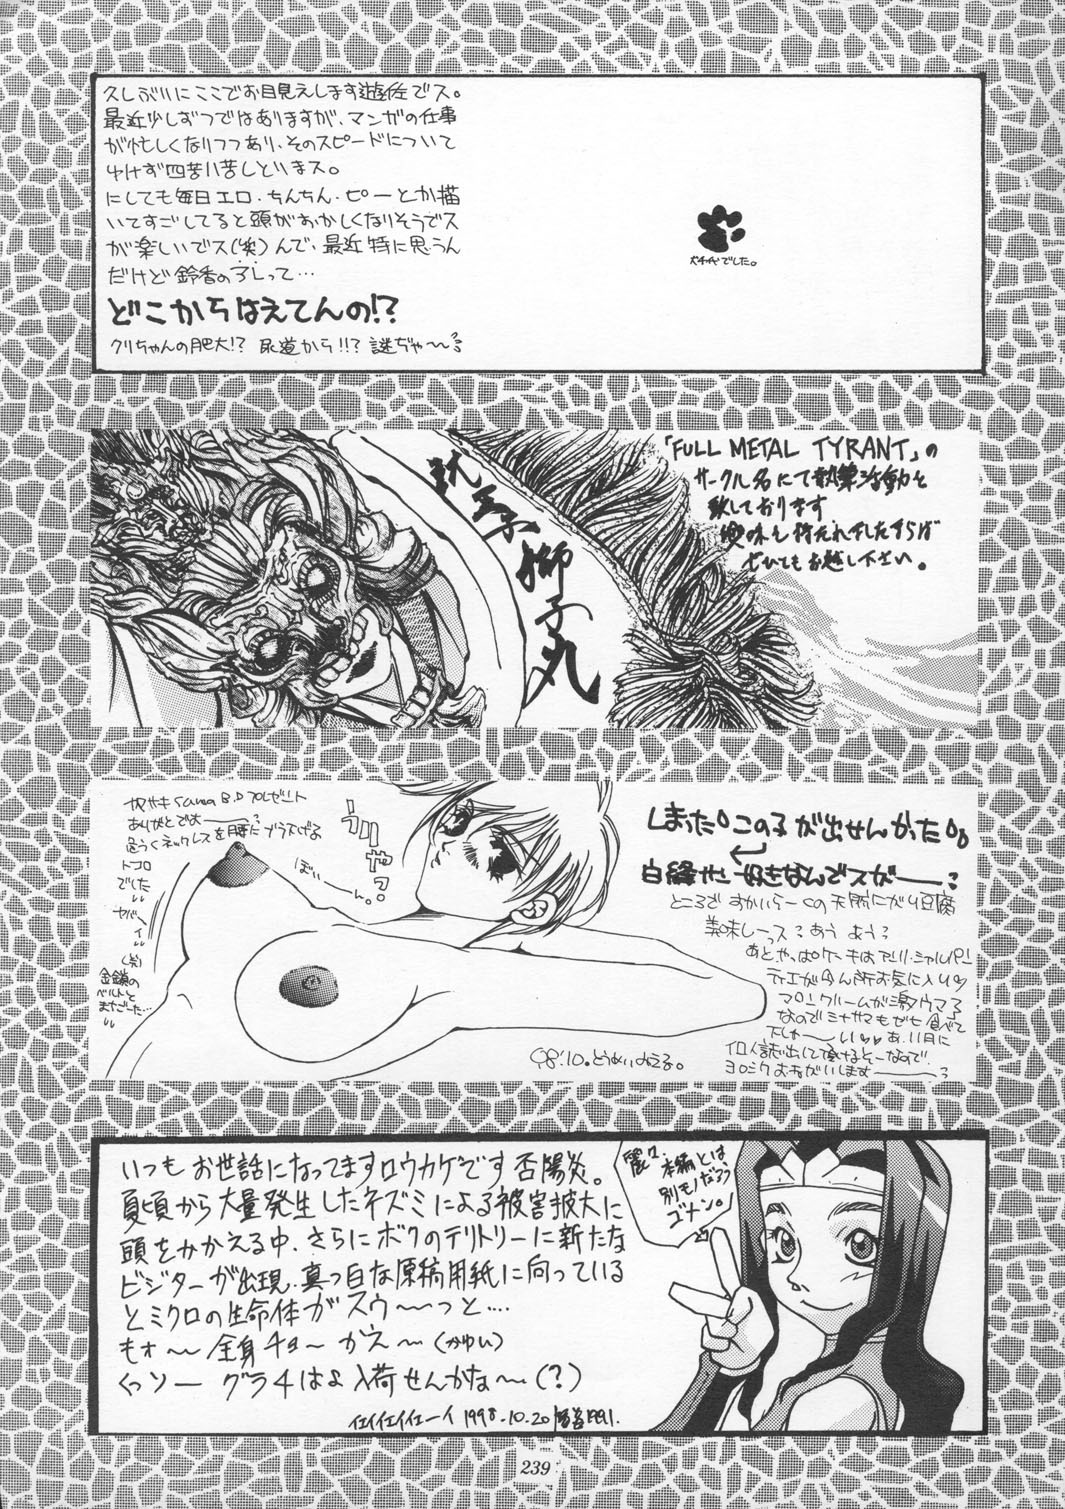 久しぶりにここでお目見えします遊佐でス。
最近少しずつではありますが、マンガの仕事
が忙しくなりつつあり、そのスピードについて
ゆけず四苦八苦しどいまス。
にしても毎日エロ・ちんちん・ピーとか描
いてすごしてると頭がおかしくなりそうでス
が楽しいでス(笑)んで、最近特に思うん
だけど鈴香のアレって…
どこからはえてんの!?
クリちゃんの肥大!? 尿道から!!? 謎ぢゃ〜〜?
でした。
「FULL METAL TYRANT」の
サークル名にて執筆活動を
致しております
興味を持たれましたすらば
ぜひともお越し下さい。
獅子丸
B.Dプレゼント
ありがとでスー?
危うくネックレスを腰にブラ下げる
トコロ
でした
ヤバ
イ
(笑)
金鎖の
ベルトと
まちごった…
うりゃ?
ぼいーん。
しまった。この子が出せんかった。
好きなんでスがー?
ところで すかいらーくの天然にがり豆腐
美味しーっス? あう よう?
なのでミナサマもぜひ食べて
ヨロシクおねがいしますー?
'98.10.とうめいみえる。
いつもお世話になってますロウカゲです否陽炎。
夏頃から大量発生したネズミによる被害拡大に
頭をかかえる中、さらにボクのテリトリーに新たな
ビジターが出現、真っ白な原稿用紙に向っている
とミクロの生命体がスゥ〜〜っと….
もォ〜 全身チョ〜 かえ〜(かゆい)
くっソー グラ4はよ入荷せんかな〜(?)
1998.10.20
本編とは
別モノだろう
ゴメン。
239